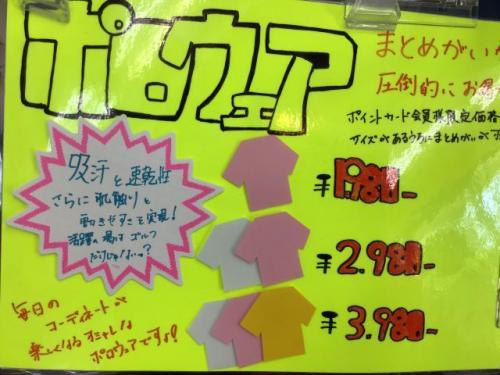 ポロウェア
まとめがいが
圧倒的にお得
ポイントカード会員様限定価格
サイズがあるうちにまとめがいが
吸汗と速乾性
さらに肌触りと
動きやすさを実現!
活躍の場はゴルフ
だけじゃないっ?
¥1.980-
¥2.980-
¥3.980-
毎日の
コーディネートが
楽しくなるオシャレな
ポロウェアですッ!